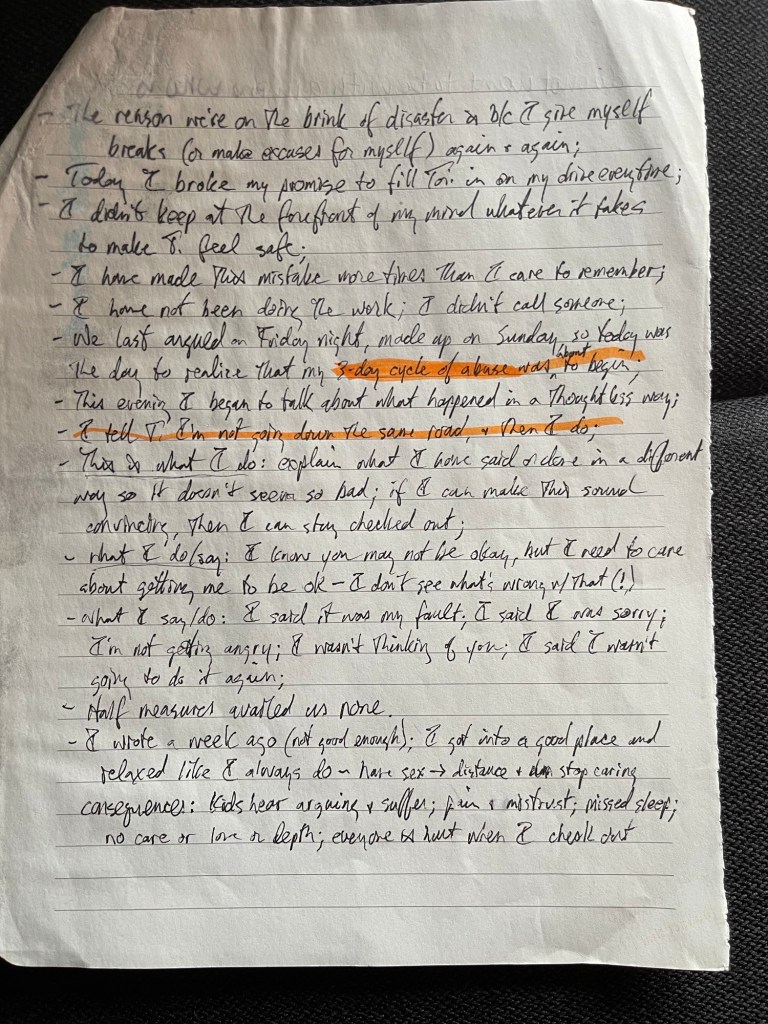 - The reason we're on the brink of disaster is b/c I give myself
breaks (or make excuses for myself) again & again;
- Today I broke my promise to fill Tori in on my drive everytime;
- I didn't keep at the forefront of my mind whatever it takes
to make T. feel safe;
- I have made this mistake more times than I care to remember;
- I have not been doing the work; I didn't call someone;
- We last argued on Friday night, made up on Sunday, so today was
the day to realize that my 3-day cycle of abuse was about to begin;
- This evening I began to talk about what happened in a thoughtless way;
- I tell T. I'm not going down the same road, & then I do;
- This is what I do: explain what I have said or done in a different
way so it doesn't seem so bad; if I can make this sound
convincing, then I can stay checked out;
- what I do/say: I know you may not be okay, but I need to care
about getting me to be ok - I don't see what's wrong w/ that (!)
- what I say/do: I said it was my fault; I said I was sorry;
I'm not getting angry; I wasn't thinking of you; I said I wasn't
going to do it again;
- Half measures availed us none.
- I wrote a week ago (not good enough); I got into a good place and
relaxed like I always do - have sex → distance + stop caring
consequences: kids hear arguing & suffer; pain & mistrust; missed sleep;
no care or love or depth; everyone is hurt when I check out